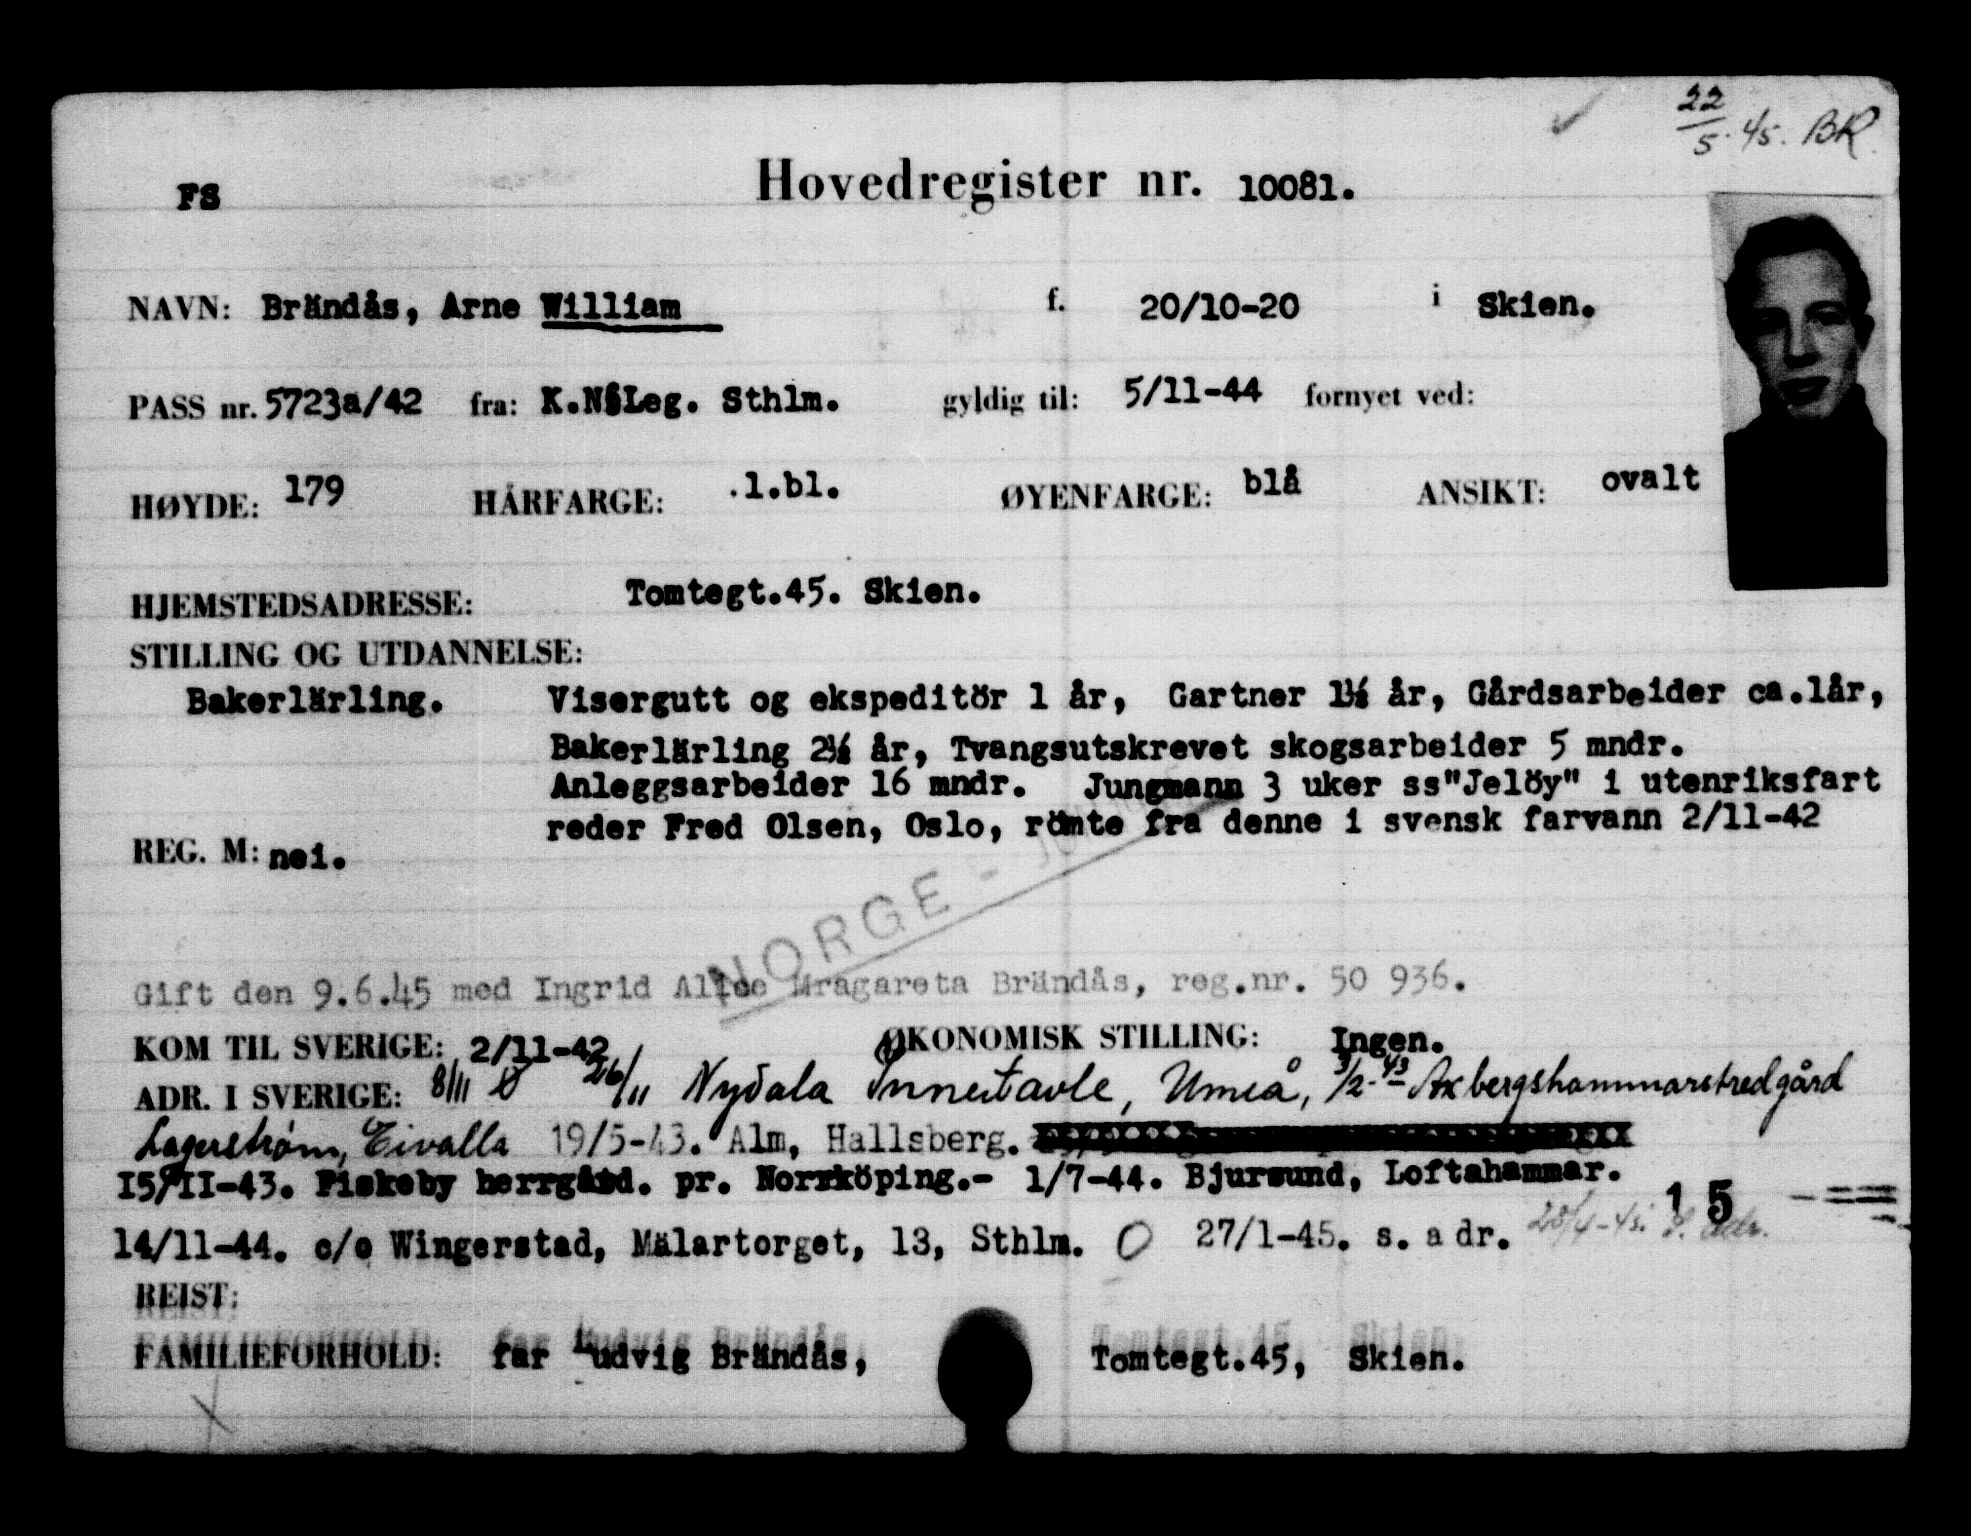 22/5. 45. BR.
FS
Hovedregister nr. 10081.
NAVN: Brändås, Arne William f. 20/10-20 i Skien.
PASS nr. 5723a/42 fra: K.N.Leg. Sthlm. gyldig til: 5/11-44 fornyet ved:
HØYDE: 179 HÅRFARGE: .l.bl. ØYENFARGE: blå ANSIKT: ovalt
HJEMSTEDSADRESSE: Tomtegt.45. Skien.
STILLING OG UTDANNELSE:
Bakerlärling. Visergutt og ekspeditör 1 år, Gartner 1½ år, Gårdsarbeider ca.1år,
Bakerlärling 2½ år, Tvangsutskrevet skogsarbeider 5 mndr.
Anleggsarbeider 16 mndr. Jungmann 3 uker ss"Jelöy" i utenriksfart
reder Fred Olsen, Oslo, römte fra denne i svensk farvann 2/11-42
REG. M: nei.
NORGE -
Gift den 9.6.45 med Ingrid Alice Mragareta Brändås, reg.nr. 50 936.
KOM TIL SVERIGE: 2/11-42 ØKONOMISK STILLING: Ingen.
ADR. I SVERIGE: 8/11 26/11 Nydala Innertavle, Umeå, 3/2-43 Axbergshammarstredgård
Lagerström, Eivalla 19/5-43. Alm, Hallsberg.
15/11-43. Fiskeby herrgård. pr. Norrköping.- 1/7-44. Bjursund, Loftahammar.
15
14/11-44. c/o Wingerstad, Mälartorget, 13, Sthlm. O 27/1-45. s. adr. 28/4-45. s. adr.
REIST:
FAMILIEFORHOLD: far Ludvig Brändås, Tomtegt.45, Skien.